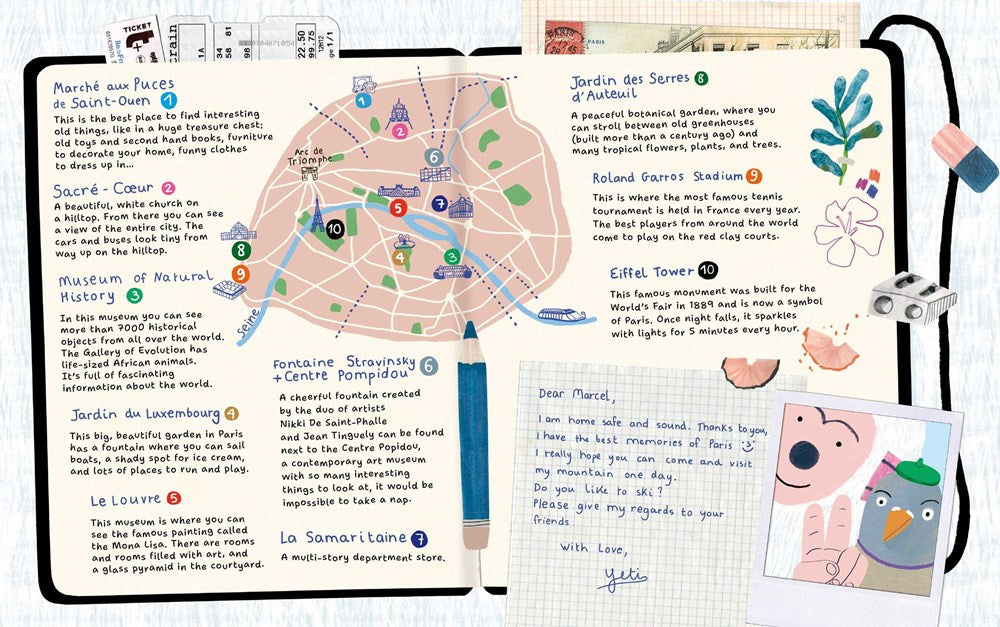 TICKET
PARIS
Marché aux Puces
de Saint-Ouen 1
This is the best place to find interesting
old things, like in a huge treasure chest:
old toys and second hand books, furniture
to decorate your home, funny clothes
to dress up in...
Sacré-Cœur 2
A beautiful, white church on
a hilltop. From there you can see
a view of the entire city. The
cars and buses look tiny from
way up on the hilltop.
Museum of Natural
History 3
In this museum you can see
more than 7000 historical
objects from all over the world.
The Gallery of Evolution has
life-sized African animals.
It's full of fascinating
information about the world.
Jardin du Luxembourg 4
This big, beautiful garden in Paris
has a fountain where you can sail
boats, a shady spot for ice cream,
and lots of places to run and play.
Le Louvre 5
This museum is where you can
see the famous painting called
the Mona Lisa. There are rooms
and rooms filled with art, and
a glass pyramid in the courtyard.
1
2
Arc de
Triomphe
6
5
7
10
4
3
8
9
Seine
Fontaine Stravinsky
+Centre Pompidou 6
A cheerful fountain created
by the duo of artists
Nikki De Saint-Phalle
and Jean Tinguely can be found
next to the Centre Popidou,
a contemporary art museum
with so many interesting
things to look at, it would be
impossible to take a nap.
La Samaritaine 7
A multi-story department store.
Jardin des Serres 8
d'Auteuil
A peaceful botanical garden, where you
can stroll between old greenhouses
(built more than a century ago) and
many tropical flowers, plants, and trees.
Roland Garros Stadium 9
This is where the most famous tennis
tournament is held in France every year.
The best players from around the world
come to play on the red clay courts.
Eiffel Tower 10
This famous monument was built for the
World's Fair in 1889 and is now a symbol
of Paris. Once night falls, it sparkles
with lights for 5 minutes every hour.
Dear Marcel,
I am home safe and sound. Thanks to you,
I have the best memories of Paris
I really hope you can come and visit
my mountain one day.
Do you like to ski?
Please give my regards to your
friends.
With Love,
Yeti